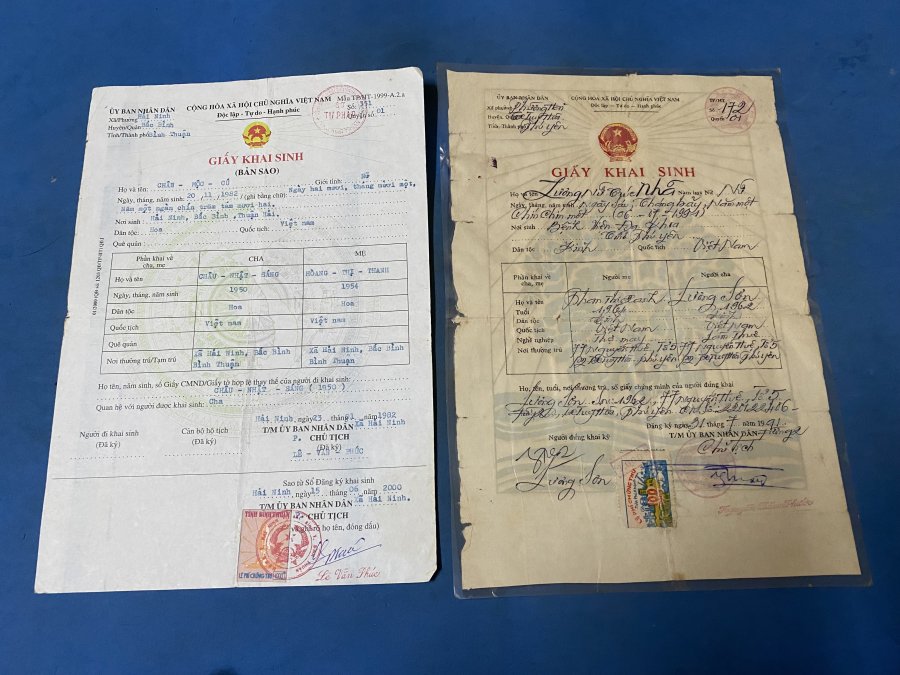 ỦY BAN NHÂN DÂN
Xã/Phường Hải Ninh
Huyện/Quận Bắc Bình
Tỉnh/Thành phố Bình Thuận
CỘNG HÒA XÃ HỘI CHỦ NGHĨA VIỆT NAM
Độc lập - Tự do - Hạnh phúc
Mẫu TP/HT-1999-A.2.a
Số: 351
Quyển số: 01
GIẤY KHAI SINH
(BẢN SAO)
Họ và tên: CHÂU - MỘC - CÓ Giới tính: Nữ
Ngày, tháng, năm sinh: 20/11/1982 (ghi bằng chữ) Ngày hai mươi, tháng mười một,
Năm một ngàn chín trăm tám mươi hai.
Nơi sinh: Hải Ninh, Bắc Bình, Thuận Hải.
Dân tộc: Hoa Quốc tịch: Việt nam
Quê quán:
Phần khai về cha, mẹ CHA MẸ
Họ và tên CHÂU - NHẬT - SÁNG HOÀNG - THỊ - THANH
Ngày, tháng, năm sinh 1950 1954
Dân tộc Hoa Hoa
Quốc tịch Việt nam Việt nam
Quê quán
Nơi thường trú/Tạm trú Xã Hải Ninh, Bắc Bình Bình Thuận Xã Hải Ninh, Bắc Bình Bình Thuận
Họ tên, năm sinh, số Giấy CMND/Giấy tờ hợp lệ thay thế của người đi khai sinh:
CHÂU - NHẬT - SÁNG (1950)
Quan hệ với người được khai sinh: Cha
Hải Ninh, ngày 23 tháng 01 năm 1982
Người đi khai sinh
(Đã ký)
Cán bộ hộ tịch
(Đã ký)
T/M ỦY BAN NHÂN DÂN Xã Hải Ninh
P. CHỦ TỊCH
(Đã ký)
LÊ - VĂN - PHÚC
Sao từ Sổ Đăng ký khai sinh
Hải Ninh ngày 15 tháng 06 năm 2000
T/M ỦY BAN NHÂN DÂN Xã Hải Ninh.
CHỦ TỊCH
(ghi rõ họ tên, đóng dấu)
TỈNH BÌNH THUẬN
Lê Văn Phúc
ỦY BAN NHÂN DÂN
Xã phường
Huyện, Quận
Tỉnh, Thành phố Phú Yên
CỘNG HÒA XÃ HỘI CHỦ NGHĨA VIỆT NAM
Độc lập - Tự do - Hạnh phúc
TP/HT
Số 172
Quyển số 01
GIẤY KHAI SINH
Họ và tên Lương Nữ Trúc Nhã Nam hay Nữ Nữ
Ngày, tháng, năm sinh Ngày sáu, tháng bảy, Năm một
Chín chín một (06-07-1991)
Nơi sinh Bệnh viện
Phú Yên
Dân tộc Kinh Quốc tịch Việt Nam
Phần khai về cha, mẹ Người mẹ Người cha
Họ và tên Lương Sơn
Tuổi 1964 1962
Dân tộc Kinh
Quốc tịch Việt Nam Việt Nam
Nghề nghiệp Thợ may Làm thuê
Nơi thường trú 77 Nguyễn Huệ Tổ 5 77 Nguyễn Huệ, Tổ 5
Họ, tên, tuổi, nơi thường trú, số giấy chứng minh của người đứng khai
Lương Sơn. 1962, 77 Nguyễn Huệ, Tổ 5
Đăng ký ngày 31 tháng 7 năm 1991
Người đứng khai ký
Lương Sơn
T/M ỦY BAN NHÂN DÂN
Chủ Tịch